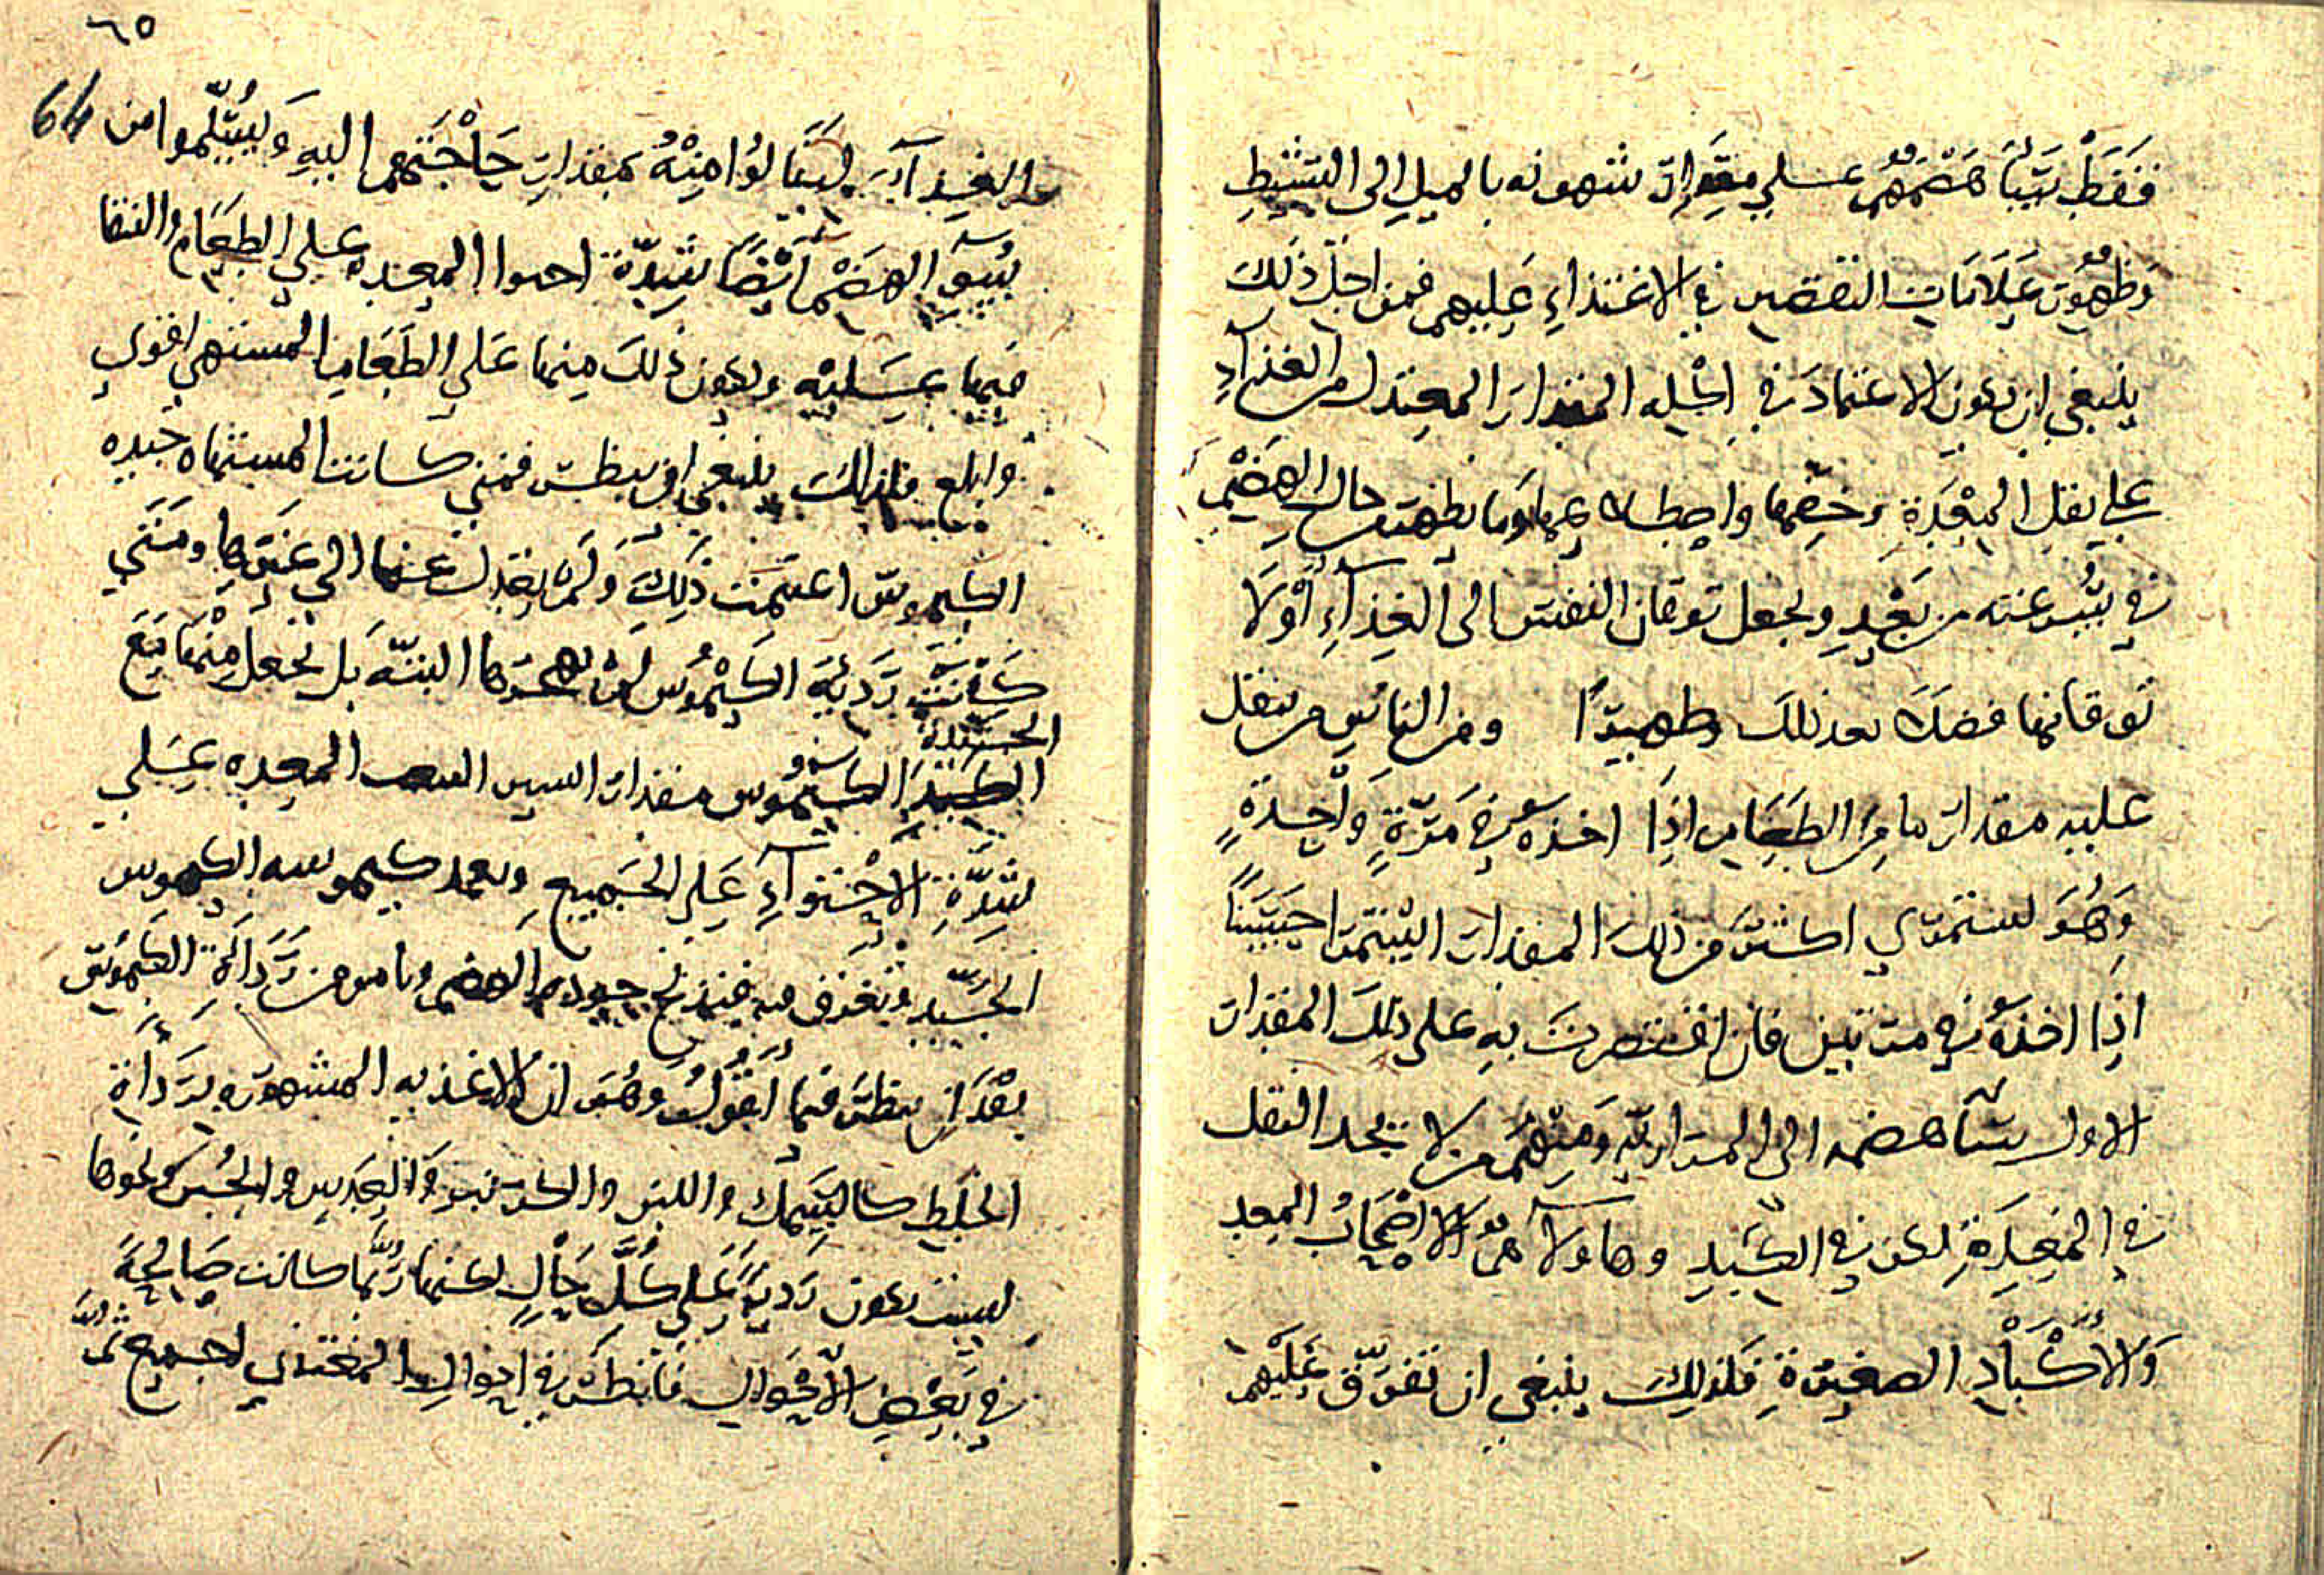 فقط تنبا هضمهم على مقدار شهوته بالميل الى التنشيط
وظهور علامات النقص في الاغتذاء عليهم فمن اجل ذلك
ينبغي ان يكون الاعتماد في الجملة المقدار المعتدل من الغذآء
على ثقل المعدة وخفتها وما يظهر من حال الهضم
في سرعته من بعد ويجعل توقان النفس الى الغذآء اولا
توقانها فضلا بعد ذلك ظهيرًا ومن الناس من يثقل
عليه مقدار ما من الطعام اذا اخذه في مرة واحدة
وهو يستمري اكثر من ذلك المقدار استمرا حسنًا
اذا اخذه في مرتين فان اقتصرت به على ذلك المقدار
الاول هضمه الى المرارية ومنهم من لا يجد الثقل
في المعدة لكن في الكبد وهاولآ هم اصحاب المعد
والاكباد الصغيرة فلذلك ينبغي ان تفرق عليهم
٦٥
64
الغذآء لينالوا منه بمقدار حاجتهم اليه ويسلموا من
سو الهضم ايضًا شدة احتوا المعدة على الطعام والتفا
فيها عسليه ويكون ذلك منها على الطعام المستهى اقوى
وابلغ فلذلك ينبغي ان ينظر فمتى كانت المستهاه جيده
الكيموس اعتمدت ذلك ولم يعدل عنها الى غيرها ومتى
كانت ردية الكيموس لم يهجرها البتة بل يجعل منها مع
الجيدة
الكيموس مقدار اليسير المعده على
شدة الاحتوآء على الجميع ويعمد كيموسه الكيموس
الجيد جودة الهضم ويامن من رداة الكيموس
بعد ان ينظر فيما اقول وهو ان الاغذيه المشهوره برداة
الخلط كالسمك واللبن والكرنب والعدس والجبن ونحوها
ليست تكون ردية على كل حال لكنها ربما كانت صالحة
في بعض الاحوال فانظر في احوال المغتذي اجمع ثم